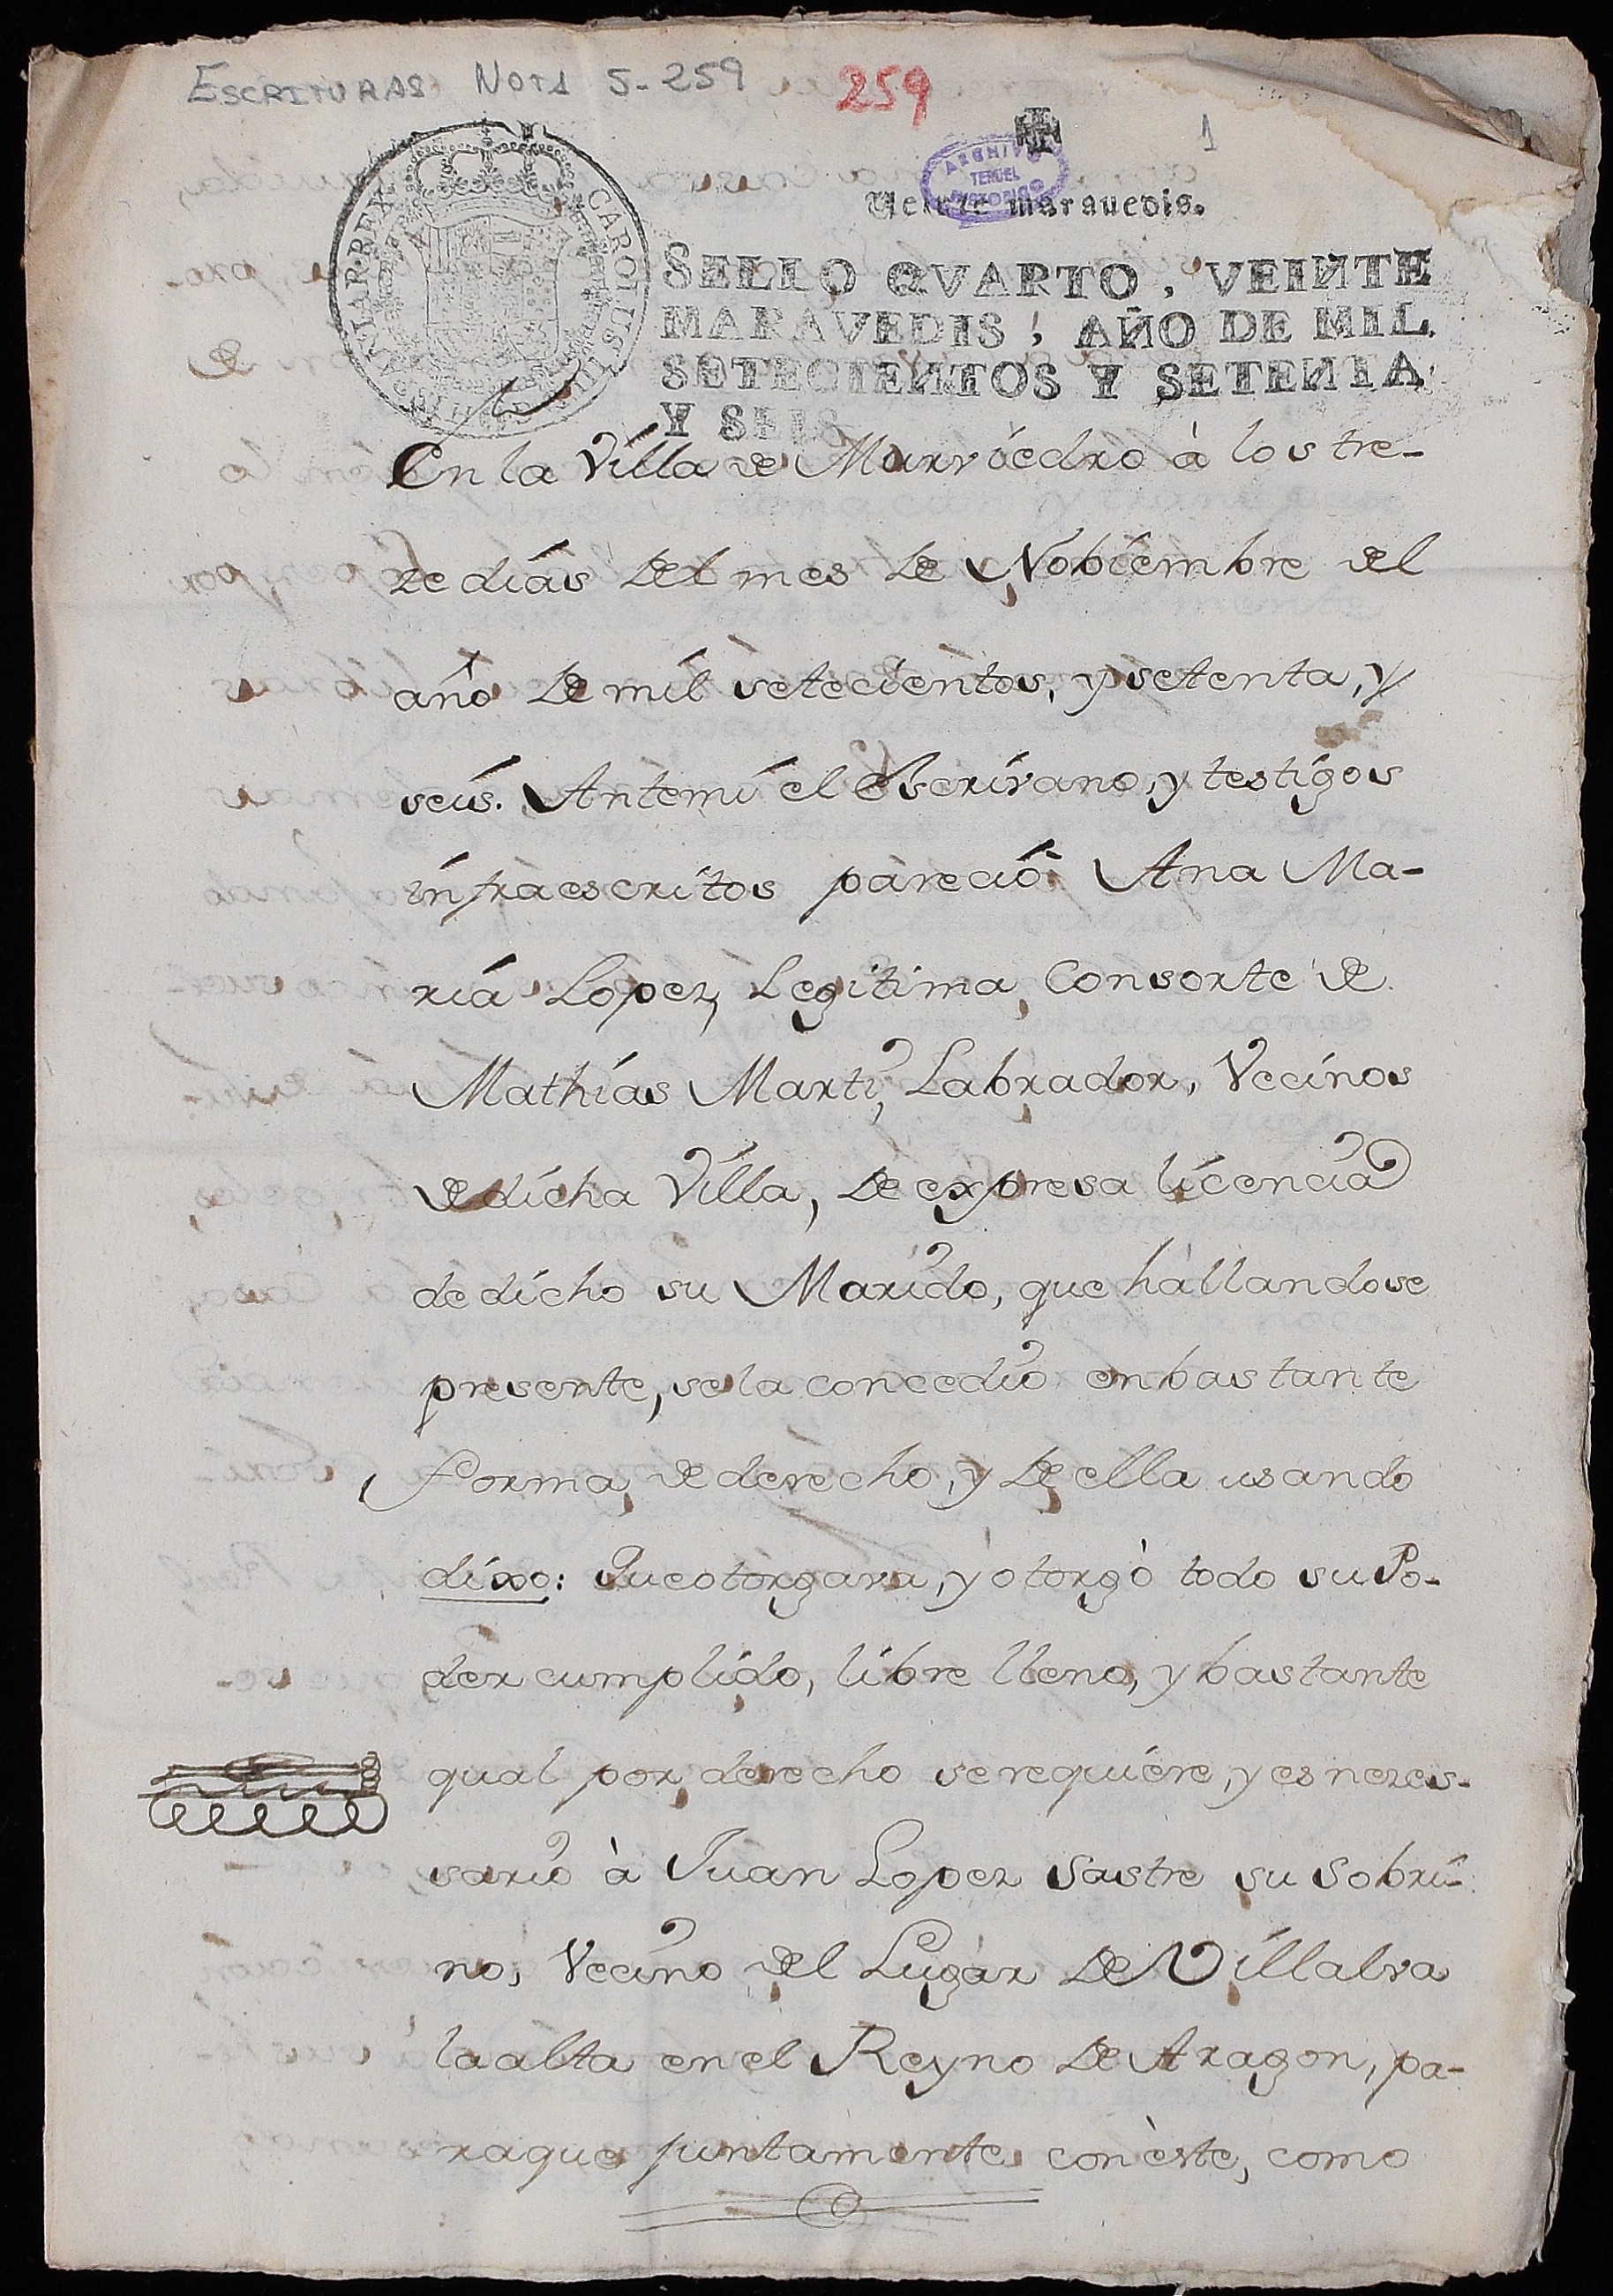 ESCRITURAS NOTS 5-259
259
1
ARCHIVO
TERUEL
HISTORICO
Veinte marauedis.
CAROLUS III
HISPANIAR REX
SELLO QVARTO, VEINTE
MARAVEDIS, AÑO DE MIL
SETECIENTOS Y SETENTA
Y SEIS
En la Villa de Murviedro à los tre-
ze dias del mes de Nobiembre del
año de mil setecientos, y setenta, y
seis. Antemi el Escrivano, y testigos
infraescritos pareciò Ana Ma-
ria Lopez, Legitima Consorte de
Mathias Marti, Labrador, Vecinos
de dicha Villa, de expresa licencia
de dicho su Marido, que hallandose
presente, se la concedio en bastante
Forma de derecho, y de ella usando
dixo: Que otorgava, y otorgò todo su Po-
der cumplido, libre lleno, y bastante
qual por derecho se requiere, y es nezes-
sario à Juan Lopez Sastre su Sobri-
no, Vecino del Lugar de Villalva
la alta en el Reyno de Aragon, pa-
raque juntamente con èste, como